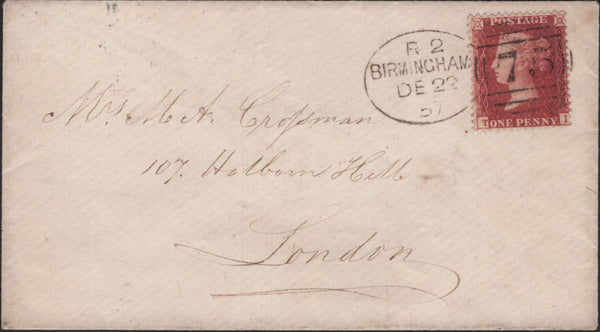 R 2
BIRMINGHAM
DE 22
57
75
POSTAGE
ONE PENNY
Mrs M. A. Crofsman
107. Holborn Hill
London